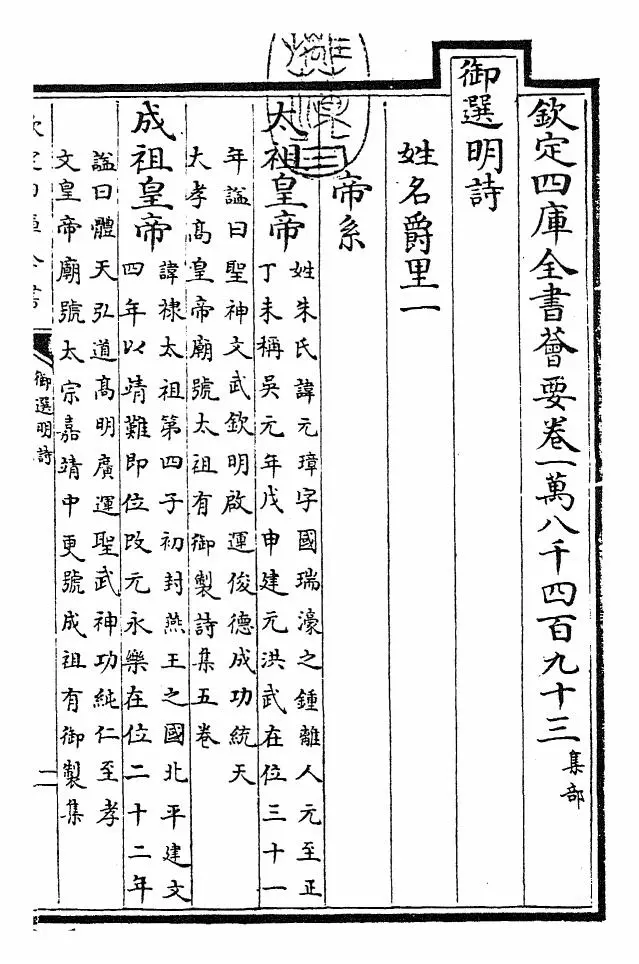 欽定四庫全書薈要卷一萬八千四百九十三 集部
御選明詩
姓名爵里一
帝系
太祖皇帝 姓朱氏諱元璋字國瑞濠之鍾離人元至正
丁未稱吳元年戊申建元洪武在位三十一
年諡曰聖神文武欽明啟運俊德成功統天
大孝高皇帝廟號太祖有御製詩集五卷
成祖皇帝 諱棣太祖第四子初封燕王之國北平建文
四年以靖難即位改元永樂在位二十二年
諡曰體天弘道高明廣運聖武神功純仁至孝
文皇帝廟號太宗嘉靖中更號成祖有御製集
御選明詩
一